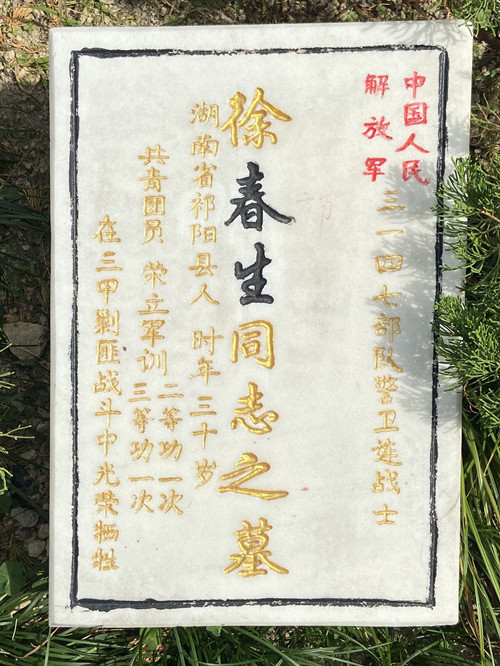 中国人民
解放军
三一四七部队警卫连战士
徐春生同志之墓
湖南省祁阳县人 时年三十岁
共青团员 荣立军训 二等功一次
三等功一次
在三甲剿匪战斗中光荣牺牲